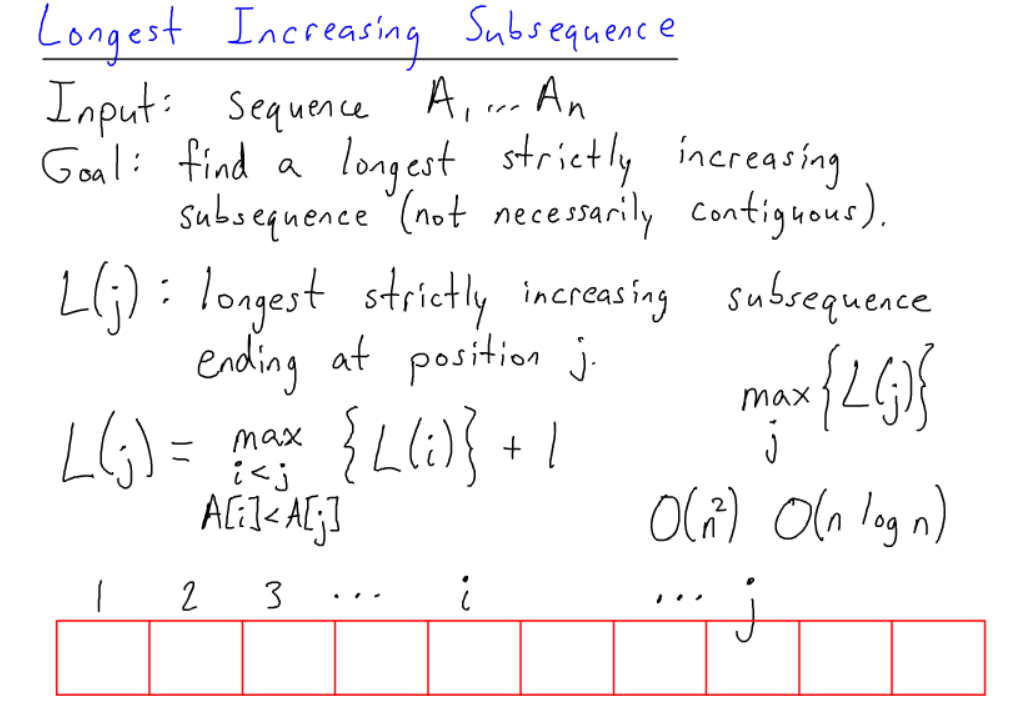 Longest Increasing Subsequence
Input: sequence A₁ ... Aₙ
Goal: find a longest strictly increasing
subsequence (not necessarily contiguous).
L(j): longest strictly increasing subsequence
ending at position j.
max {L(j)}
j
L(j) = max {L(i)} + 1
i<j
A[i]<A[j]
O(n²) O(n log n)
1 2 3 ... i ... j